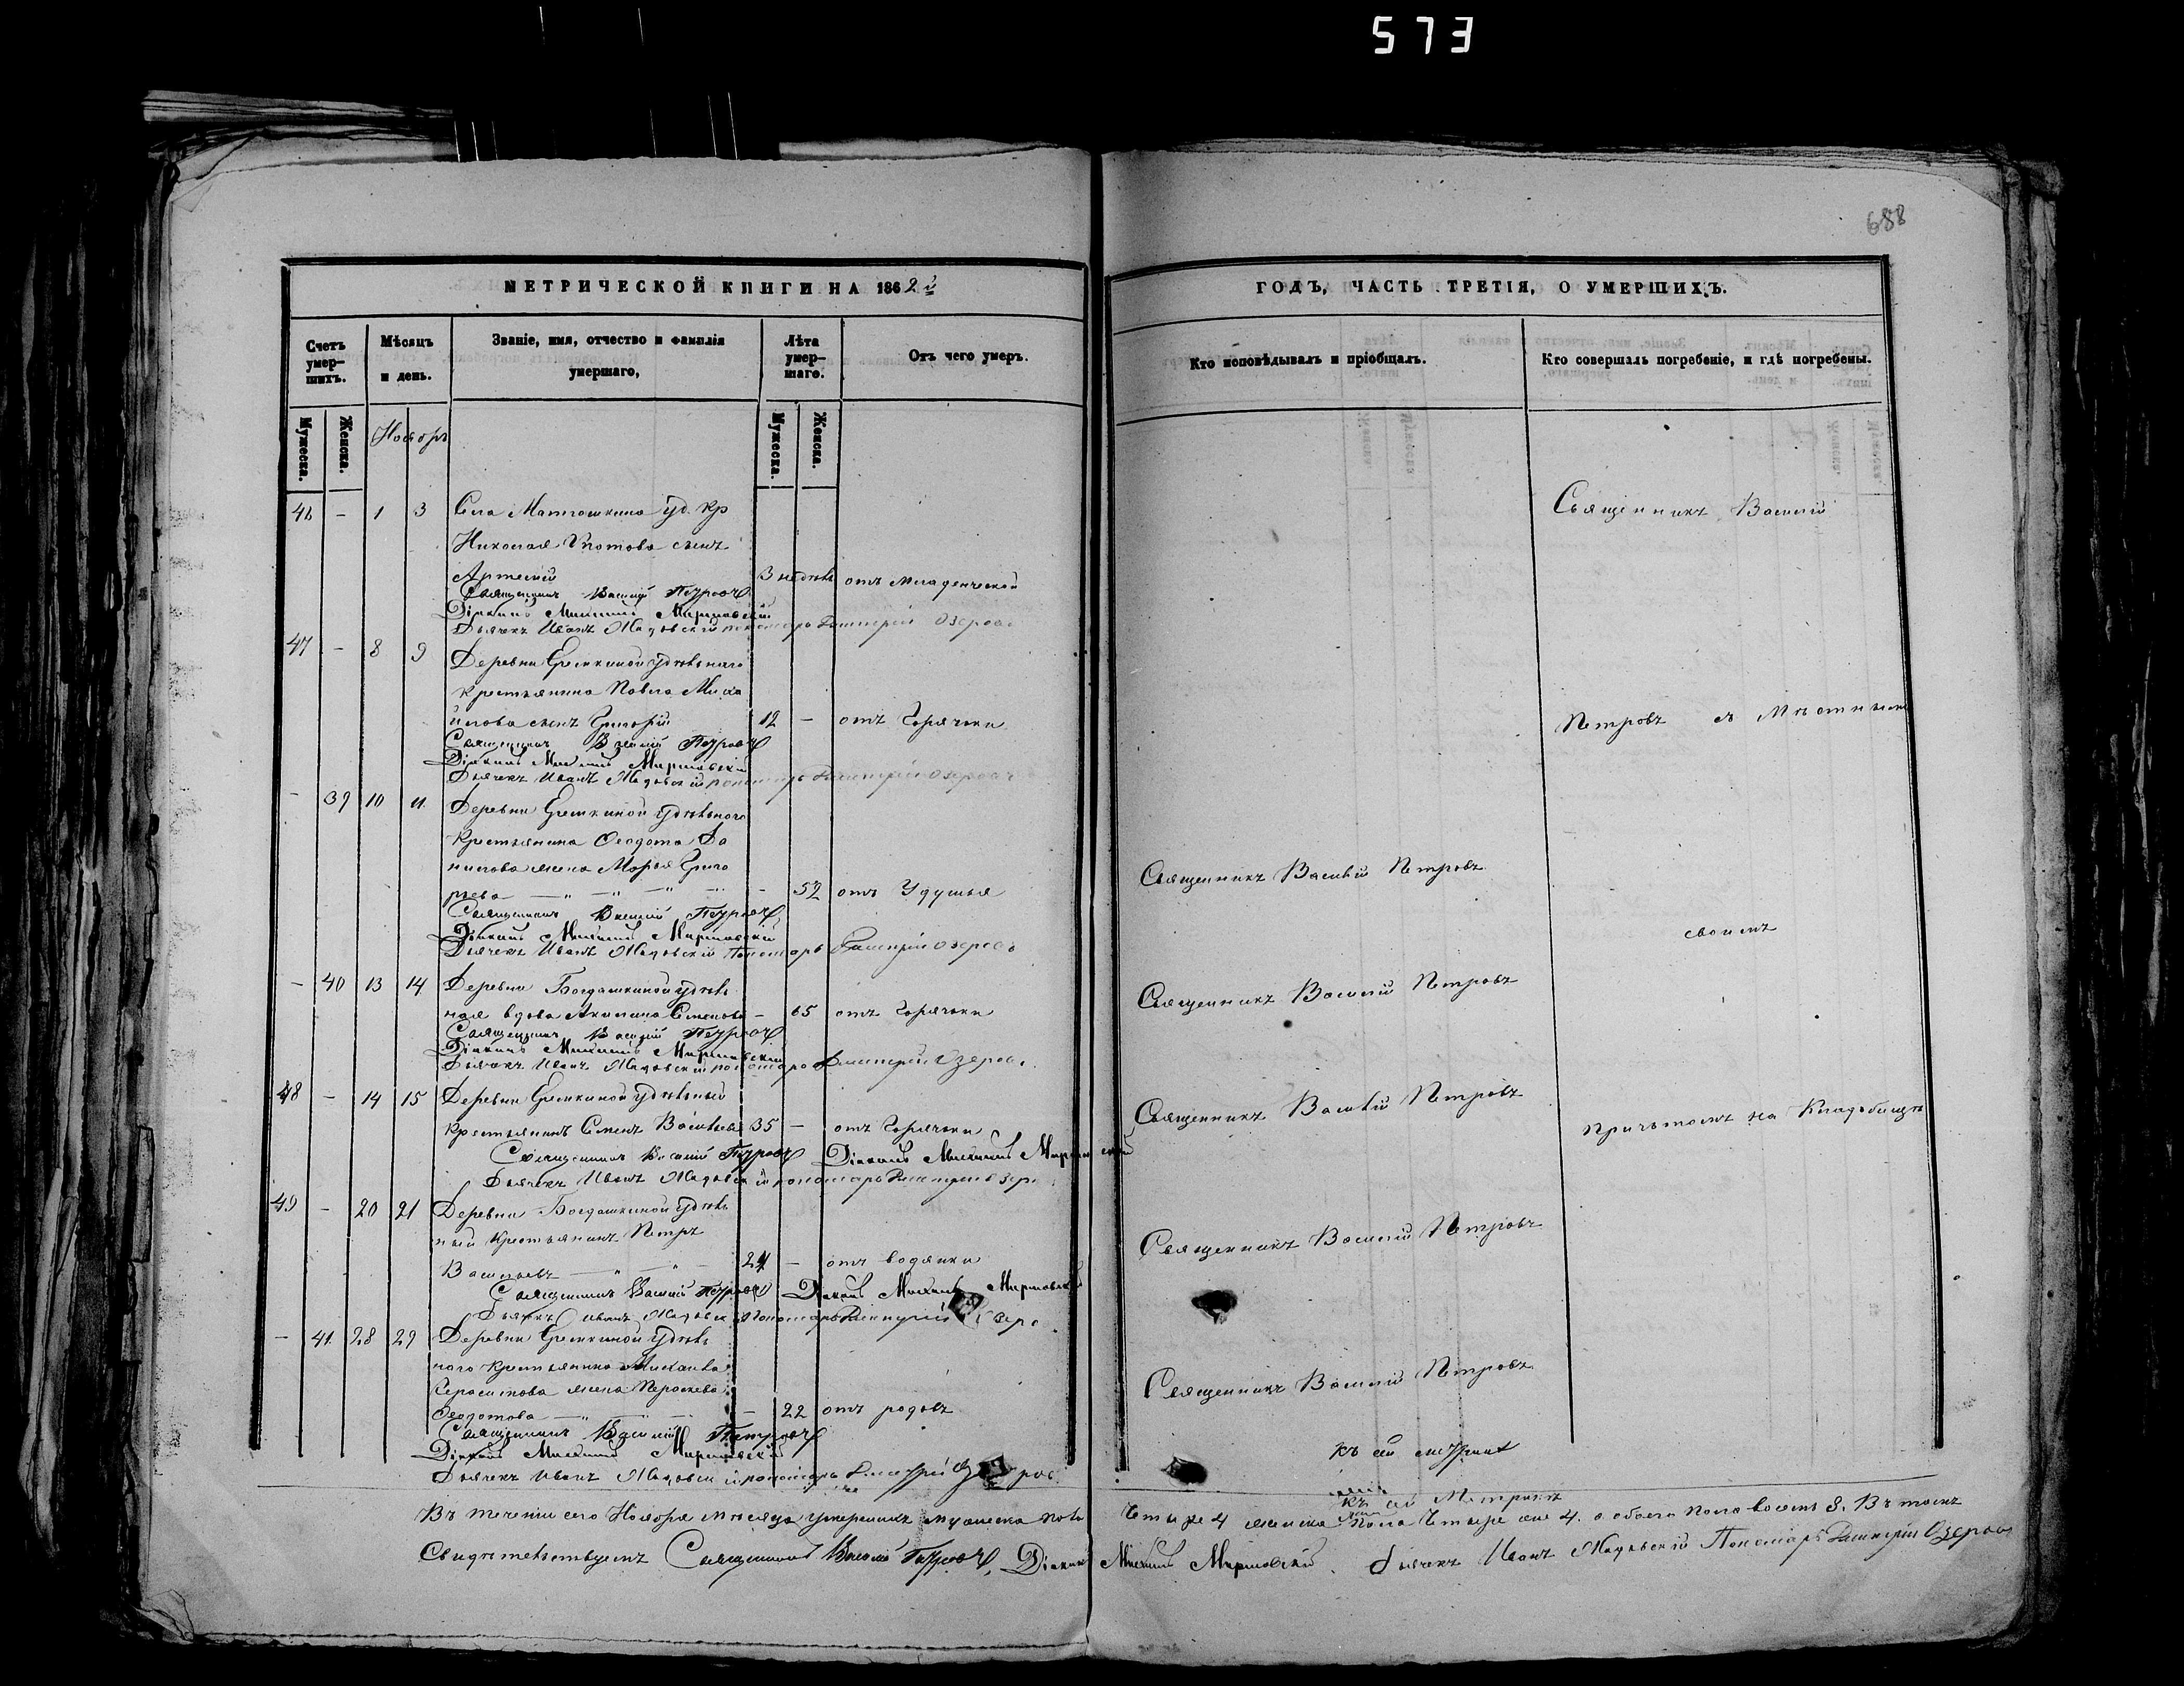 573
688
МЕТРИЧЕСКОЙ КНИГИ НА 1862й
ГОДЪ, ЧАСТЬ ТРЕТІЯ, О УМЕРШИХЪ.
Счетъ умер-шихъ.
Мѣсяцъ и день.
Званіе, имя, отчество и фамилія умершаго,
Лѣта умер-шаго.
Отъ чего умеръ.
Кто исповѣдывалъ и пріобщалъ.
Кто совершалъ погребеніе, и гдѣ погребены.
Мужеска.
Женска.
Ноябрь
Мужеска.
Женска.
46 - 1 3 Села Матюшкина уд. кр Священникъ Василій
Николая сынъ
Артемій 3 недѣль отъ младенческой
Священникъ Василій Петровъ
Діаконъ Михаилъ
Дьячекъ Иванъ пономарь Дмитрій Озеровъ
47 - 8 9 Деревни Еремкиной удѣльнаго
крестьянина Павла Миха
йлова сынъ Григорій 12 - отъ горячки Петровъ съ Мѣстнымъ
Священникъ Василій Петровъ
Діаконъ Михаилъ
Дьячекъ Иванъ пономарь Дмитрій Озеровъ
- 39 10 11 Деревни Еремкиной удѣльнаго
крестьянина Ѳеодота Да
нилова жена Марья Григо
рьева - 52 отъ удушья Священникъ Василій Петровъ
Священникъ Василій Петровъ своимъ
Діаконъ Михаилъ
Дьячекъ Иванъ Пономарь Дмитрій Озеровъ
- 40 13 14 Деревни Богдашкиной удѣль
ная вдова Акилина Семенова - 65 отъ горячки Священникъ Василій Петровъ
Священникъ Василій Петровъ
Діаконъ Михаилъ
Дьячекъ Иванъ пономарь Дмитрій Озеровъ
48 - 14 15 Деревни Еремкиной удѣльный
крестьянинъ Семенъ Васильевъ 35 - отъ горячки Священникъ Василій Петровъ Причтомъ на Кладбищѣ
Священникъ Василій Петровъ Діаконъ Михаилъ
Дьячекъ Иванъ пономарь Дмитрій Озеровъ
49 - 20 21 Деревни Богдашкиной удѣль
ный крестьянинъ Петръ
Васильевъ - отъ водянки Священникъ Василій Петровъ
Священникъ Василій Петровъ Діаконъ Михаилъ
Дьячекъ Иванъ Пономарь Дмитрій
- 41 28 29 Деревни Еремкиной удѣль
наго крестьянина Михаила
Герасимова жена Параскева
Ѳеодотова - 22 отъ родовъ Священникъ Василій Петровъ
Священникъ Василій Петровъ
Діаконъ Михаилъ къ сей метрикѣ
Дьячекъ Иванъ пономарь Дмитрій
къ сей Метрикѣ
Въ теченіи сего Ноября мѣсяца умершихъ мужеска пола четыре 4 женска пола четыре 4. а обоего пола восемь 8. Въ томъ
Свидѣтельствуемъ Священникъ Василій Петровъ, Діаконъ Михаилъ Дьячекъ Иванъ Пономарь Дмитрій Озеровъ